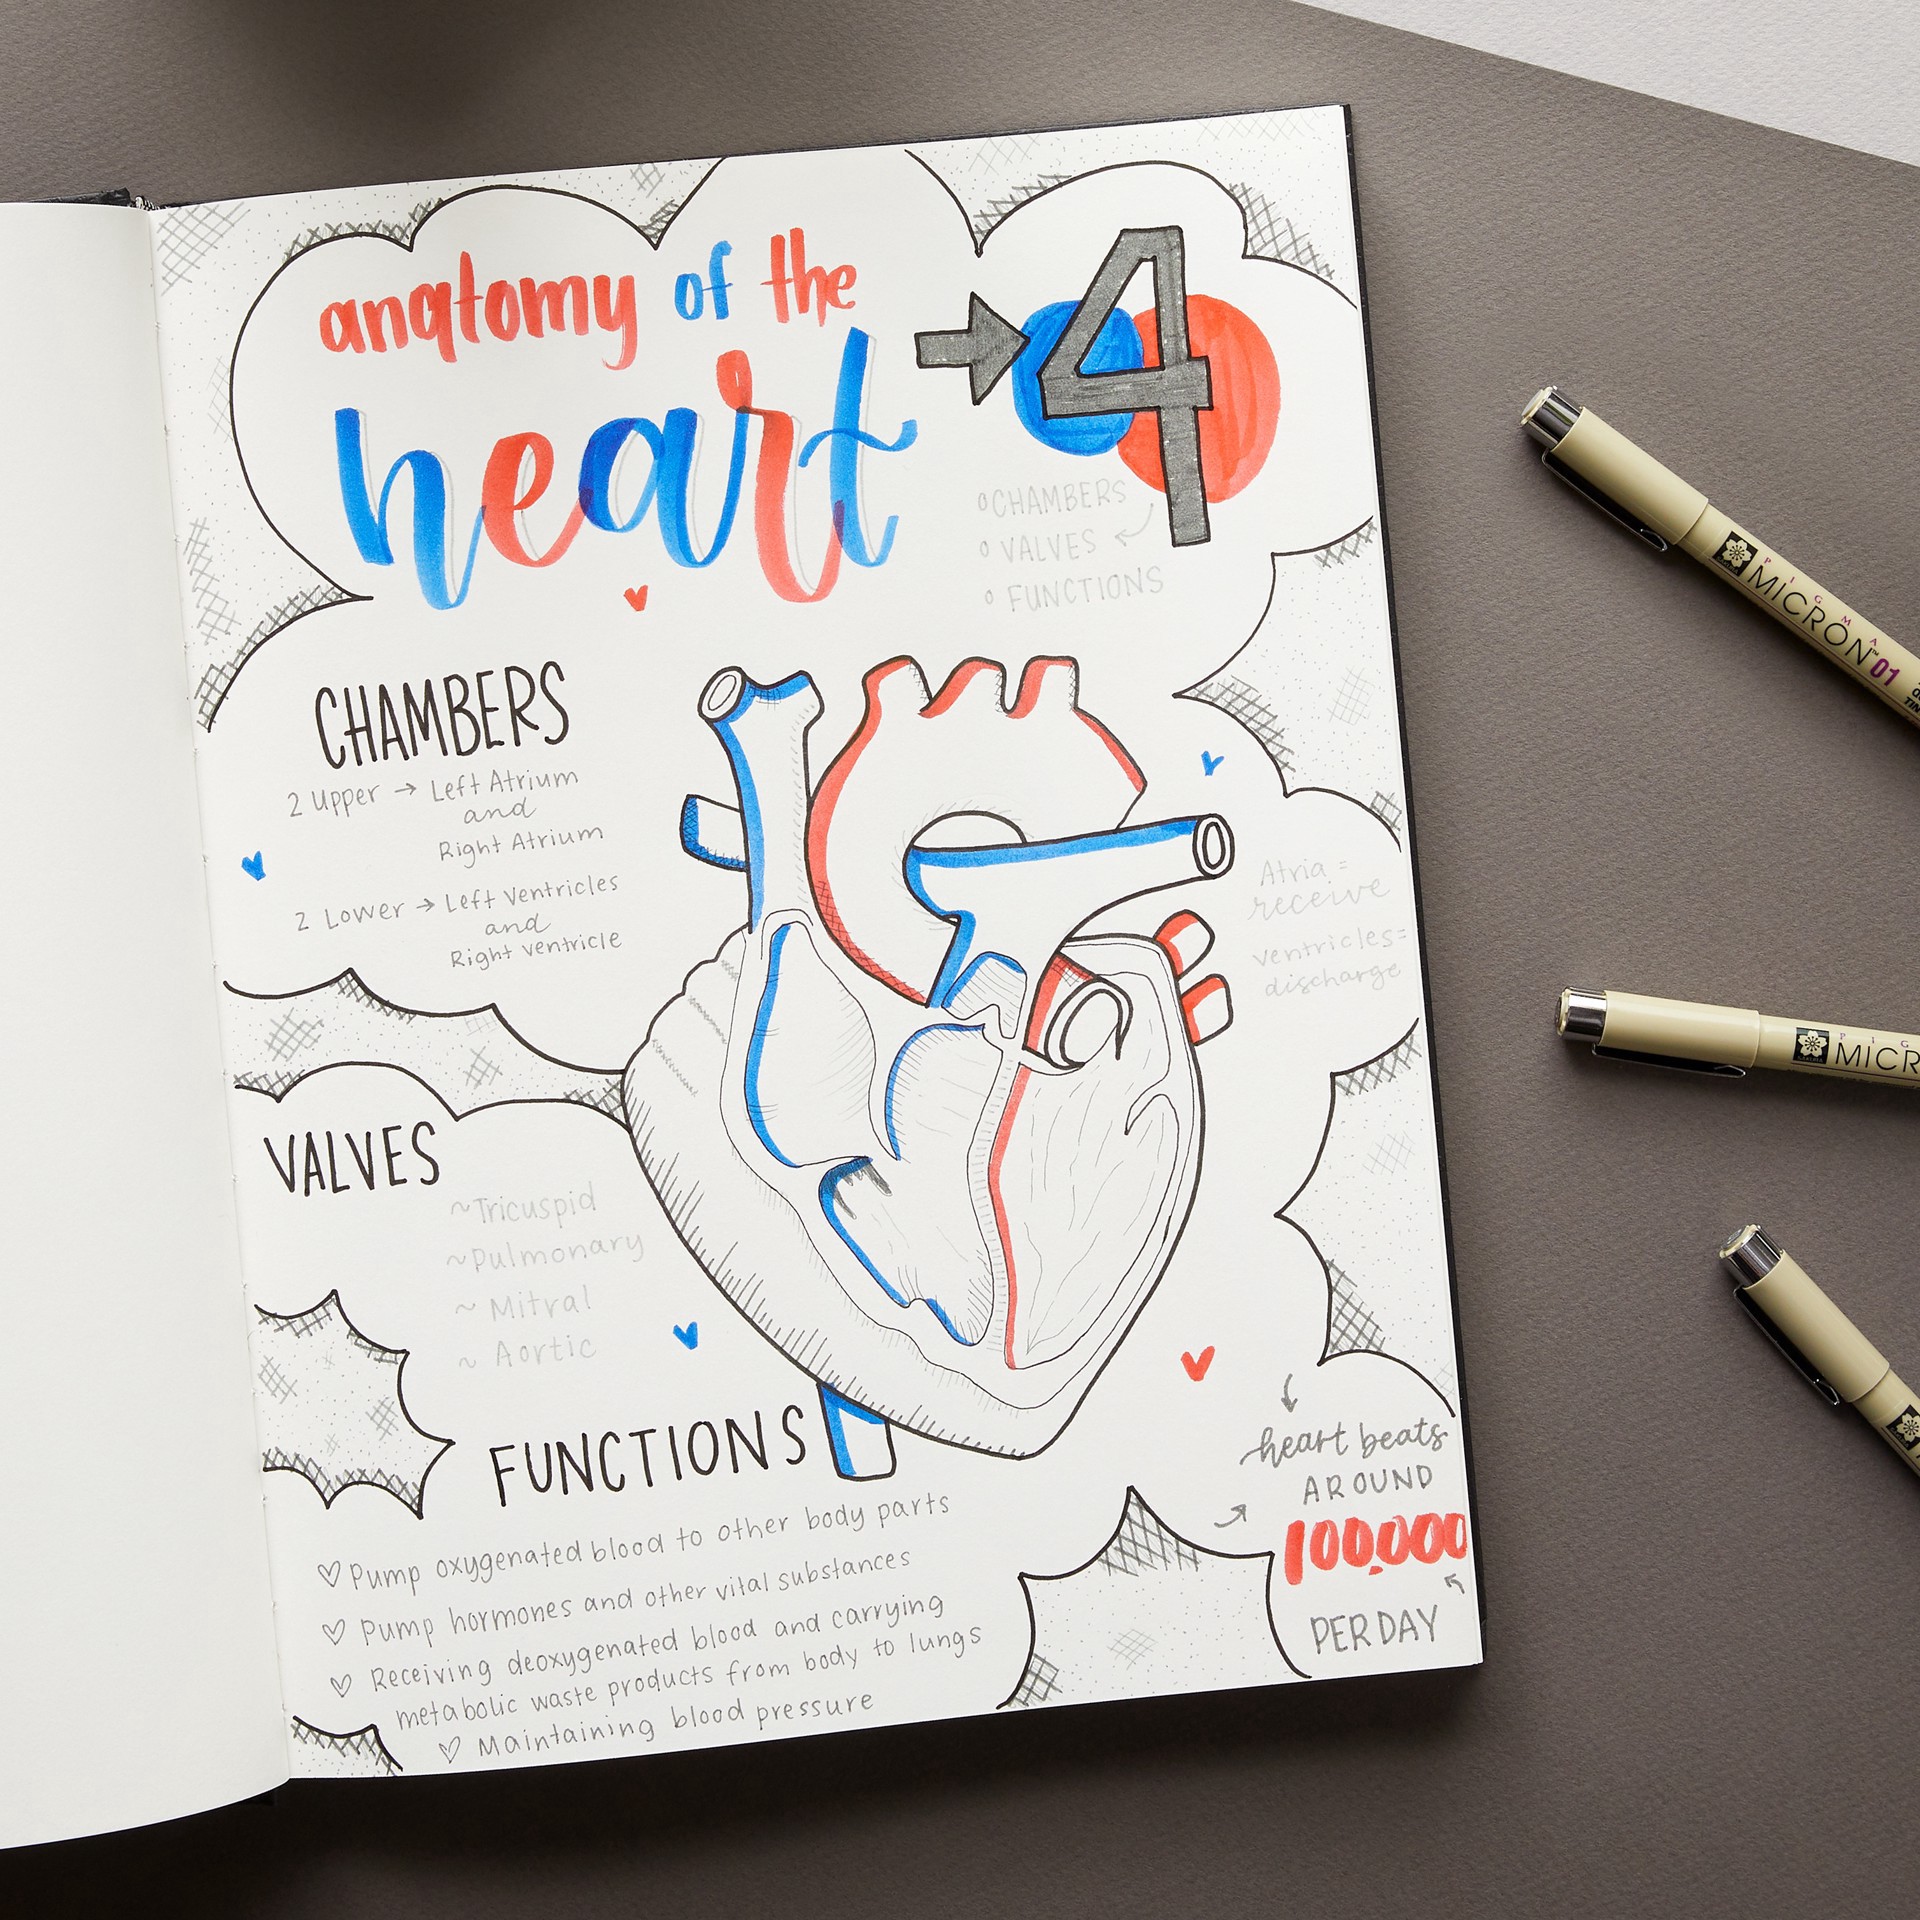 anatomy of the
heart
4
CHAMBERS
VALVES
FUNCTIONS
CHAMBERS
2 Upper → Left Atrium
and
Right Atrium
2 Lower → Left Ventricles
and
Right Ventricle
Atria =
receive
ventricles=
discharge
VALVES
~Tricuspid
~Pulmonary
~ Mitral
~ Aortic
FUNCTIONS
♡ Pump oxygenated blood to other body parts
♡ Pump hormones and other vital substances
♡ Receiving deoxygenated blood and carrying
metabolic waste products from body to lungs
♡ Maintaining blood pressure
heart beats
AROUND
100,000
PER DAY
PIGMA
MICRON™ 01
MICR